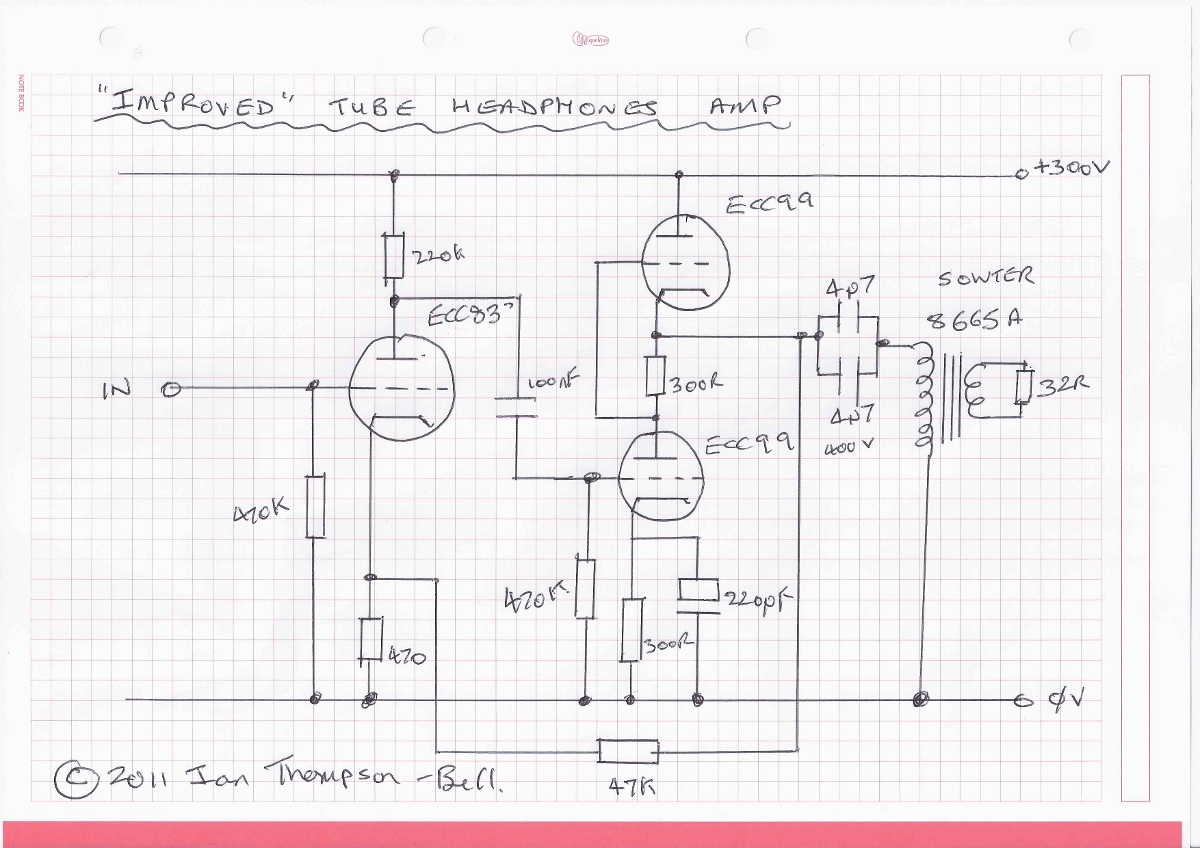 NOTE BOOK
"IMPROVED" TUBE HEADPHONES AMP
+300V
ECC99
220K
ECC83
4µ7
SOWTER
8665A
IN
100nF
300R
32R
4µ7
400V
ECC99
470K
470K
220µF
300R
470
0V
47K
© 2011 Ian Thompson-Bell.